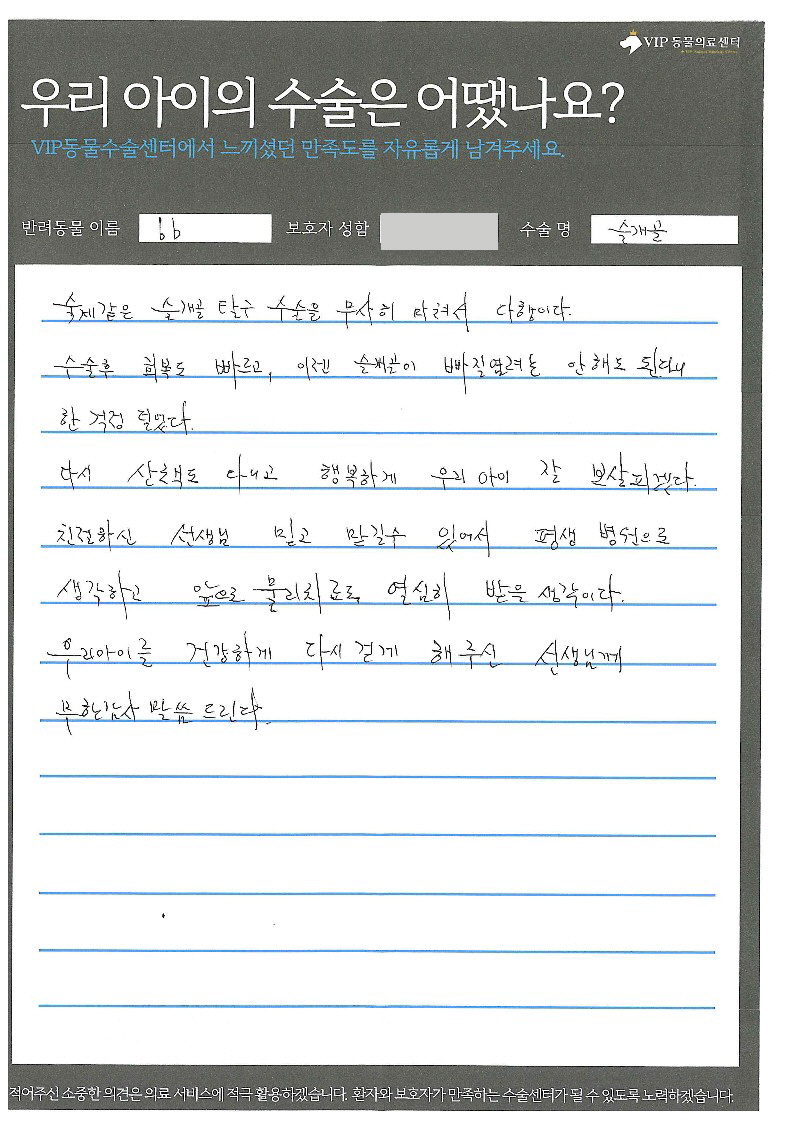 VIP 동물의료센터
우리 아이의 수술은 어땠나요?
VIP동물수술센터에서 느끼셨던 만족도를 자유롭게 남겨주세요.
반려동물 이름 보호자 성함 수술 명 슬개골
숙제같은 슬개골 탈구 수술을 무사히 마쳐서 다행이다.
수술후 회복도 빠르고, 이젠 슬개골이 빠질염려는 안해도 된다니
한 걱정 덜었다.
다시 산책도 다니고 행복하게 우리 아이 잘 보살피겠다.
친절하신 선생님 믿고 맡길수 있어서 평생 병원으로
생각하고 앞으로 물리치료도 열심히 받을 생각이다.
우리아이를 건강하게 다시 걷게 해주신 선생님께
무한감사 말씀 드린다.
적어주신 소중한 의견은 의료 서비스에 적극 활용하겠습니다. 환자와 보호자가 만족하는 수술센터가 될 수 있도록 노력하겠습니다.